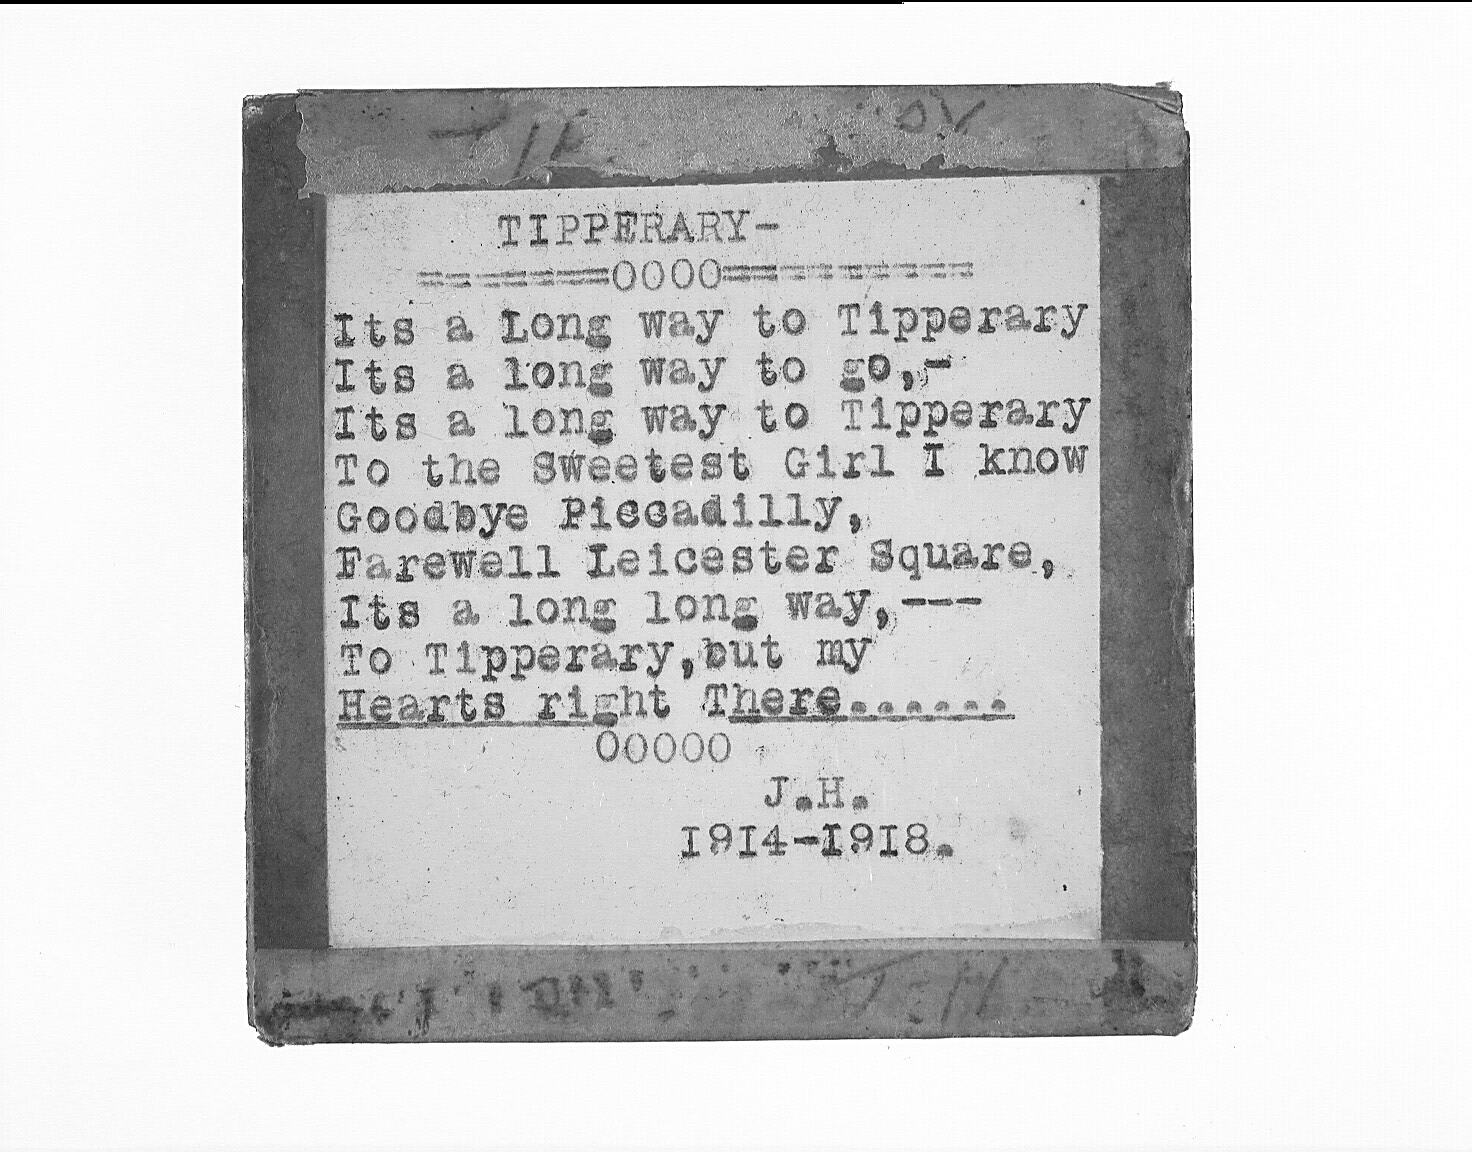 TIPPERARY-
=======OOOO=========
Its a Long way to Tipperary
Its a long way to go,-
Its a long way to Tipperary
To the Sweetest Girl I know
Goodbye Piccadilly,
Farewell Leicester Square,
Its a long long way,---
To Tipperary,but my
Hearts right There......
OOOOO
J.H.
1914-1918.